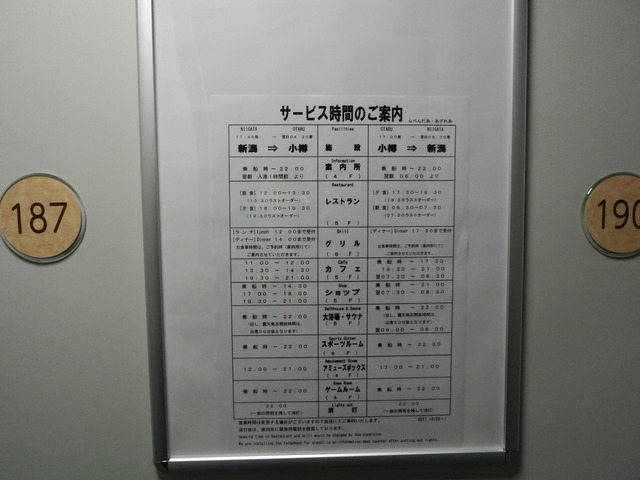 サービス時間のご案内
らべんだあ・あざれあ
NIIGATA OTARU Facilities OTARU NIIGATA
新潟 ⇒ 小樽 施設 小樽 ⇒ 新潟
Information
乗船時～22:00 案内所 乗船時～22:00
翌朝 入港1時間前 より (4F) 翌朝 06:00 より
Restaurant
[昼食] 12:00～13:30 [夕食] 17:30～19:30
(13:30ラストオーダー) レストラン (19:30ラストオーダー)
[夕食] 18:00～19:30 [朝食] 06:30～07:30
(19:30ラストオーダー) (5F) (07:30ラストオーダー)
[ランチ] Lunch 12:00まで受付 Grill [ディナー] Dinner 17:30まで受付
[ディナー] Dinner 14:00まで受付 グリル
お食事時間は、ご予約時(案内所にて) お食事時間は、ご予約時(案内所にて)
ご案内させていただきます。 (5F) ご案内させていただきます。
11:00～12:00 Cafe 乗船時～17:30
13:30～14:30 カフェ 19:30～21:00
19:30～21:00 (5F) 翌07:30～08:30
乗船時～14:30 Shop 乗船時～21:00
17:00～18:00 ショップ 翌07:30～08:30
19:30～21:00 (5F)
乗船時～22:00 大浴場・サウナ 乗船時～22:00
(但し、露天風呂開放時間は、 (但し、露天風呂開放時間は、
出港30分後となります) 出港30分後となります)
(5F) 翌06:00～08:00
Sports Corner
乗船時～22:00 スポーツルーム 乗船時～22:00
Amusement Room
12:00～21:00 アミューズボックス 17:00～21:00
(4F)
Game Room
乗船時～22:00 ゲームルーム 乗船時～22:00
(4F)
22:00 Lights out 22:00
(一部の照明を残して消灯) 消灯 (一部の照明を残して消灯)
営業時間は変更する場合がございますので放送にてご案内いたします。
消灯後は、案内所に緊急用電話を設置しております。
Opening time of Restaurant and Grill would be changed by Sea Condition.
We are installing the telephone for urgent in an information desk counter after putting out lights.
187
190